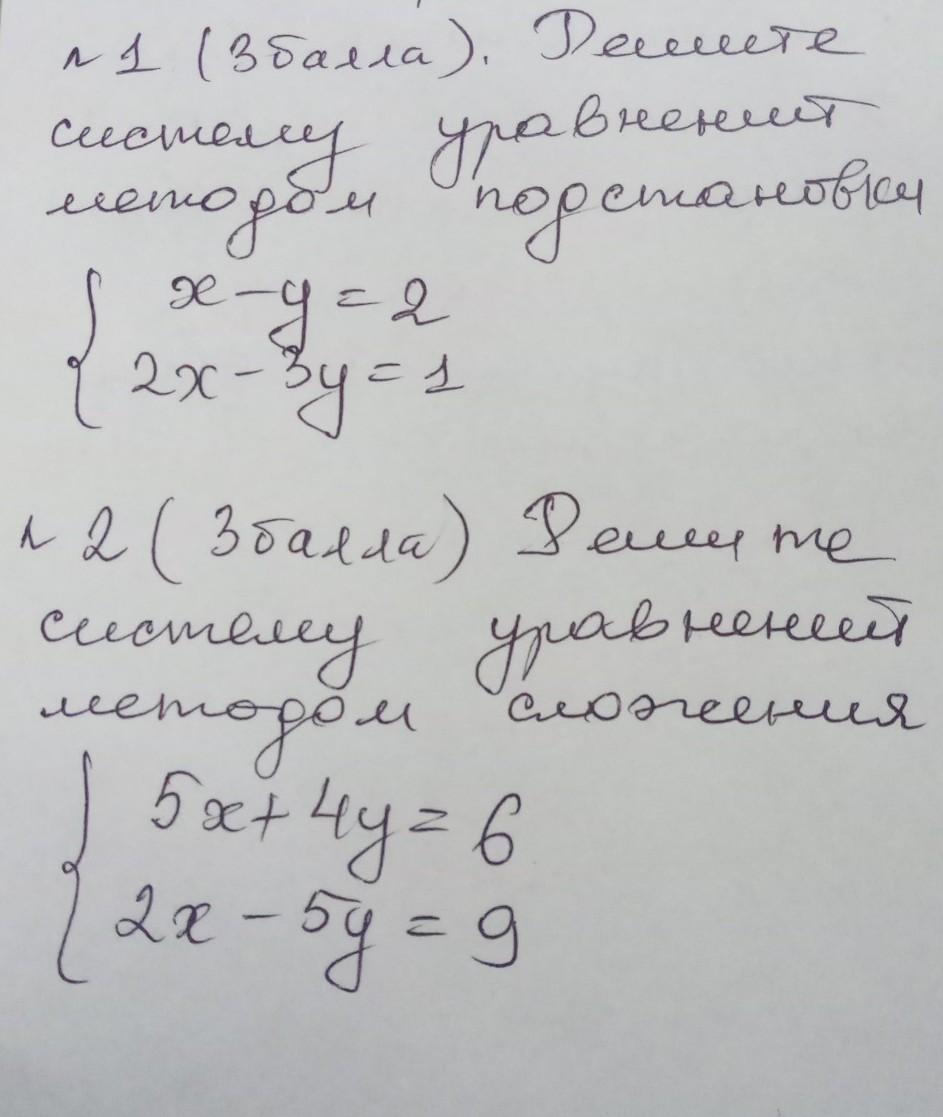 №1 (3 балла). Решите
систему уравнений
методом подстановки
{ x - y = 2
2x - 3y = 1
№2 (3 балла) Решите
систему уравнений
методом сложения
{ 5x + 4y = 6
2x - 5y = 9